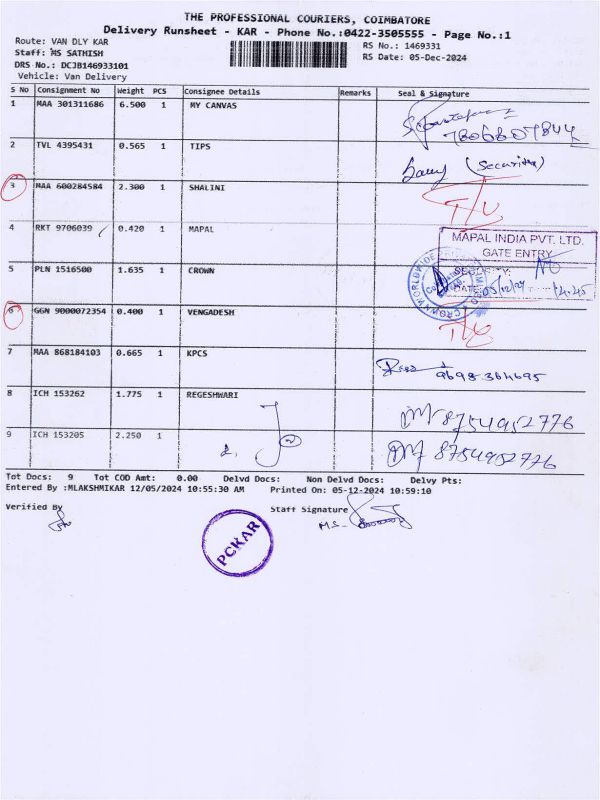 THE PROFESSIONAL COURIERS, COIMBATORE
Delivery Runsheet - KAR - Phone No.:0422-3505555 - Page No.:1
Route: VAN DLY KAR
RS No.: 1469331
Staff: MS SATHISH
RS Date: 05-Dec-2024
DRS No.: DCJB146933101
Vehicle: Van Delivery
S No Consignment No Weight PCS Consignee Details Remarks Seal & Signature
1 MAA 301311686 6.500 1 MY CANVAS
7806807844
2 TVL 4395431 0.565 1 TIPS
(Security)
3 MAA 600284584 2.300 1 SHALINI
T/U
4 RKT 9706039 0.420 1 MAPAL
MAPAL INDIA PVT. LTD.
GATE ENTRY
5 PLN 1516500 1.635 1 CROWN
SECURITY:
DATE: 05/12/24 14.45
CROWN WORLDWIDE
6 GGN 9000072354 0.400 1 VENGADESH
T/U
7 MAA 868184103 0.665 1 KPCS
9698-364695
8 ICH 153262 1.775 1 REGESHWARI
8754952776
9 ICH 153205 2.250 1
8754952776
Tot Docs: 9 Tot COD Amt: 0.00 Delvd Docs: Non Delvd Docs: Delvy Pts:
Entered By :MLAKSHMIKAR 12/05/2024 10:55:30 AM Printed On: 05-12-2024 10:59:10
Verified By
Staff Signature
M.S-
PCKAR